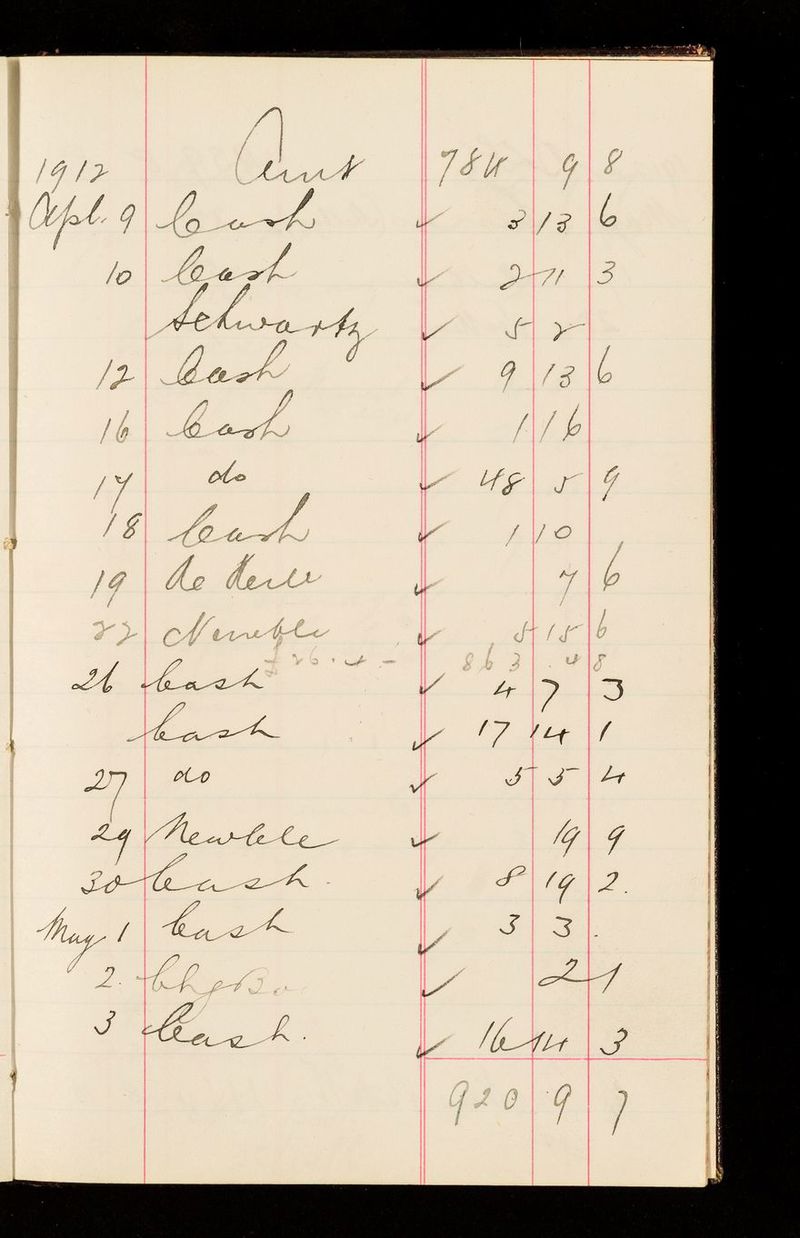 1912 Amt 784 9 8
Apl. 9 Cash ✓ 3 13 6
10 Cash ✓ 2 11 3
Schwartz ✓ 5 2
12 Cash ✓ 9 13 6
16 Cash ✓ 1 16
17 do ✓ 48 5 9
18 Cash ✓ 1 10
19 ✓ 7 6
22 ✓ 5 15 6
£26.4.- 863.4 8
26 Cash ✓ 4 7 3
Cash ✓ 17 14 1
27 do ✓ 5 5 4
29 ✓ 19 9
30 Cash. ✓ 8 19 2.
May 1 Cash ✓ 3 3.
2. ✓ 2 1
3 Cash. ✓ 16 14 3
920 9 7